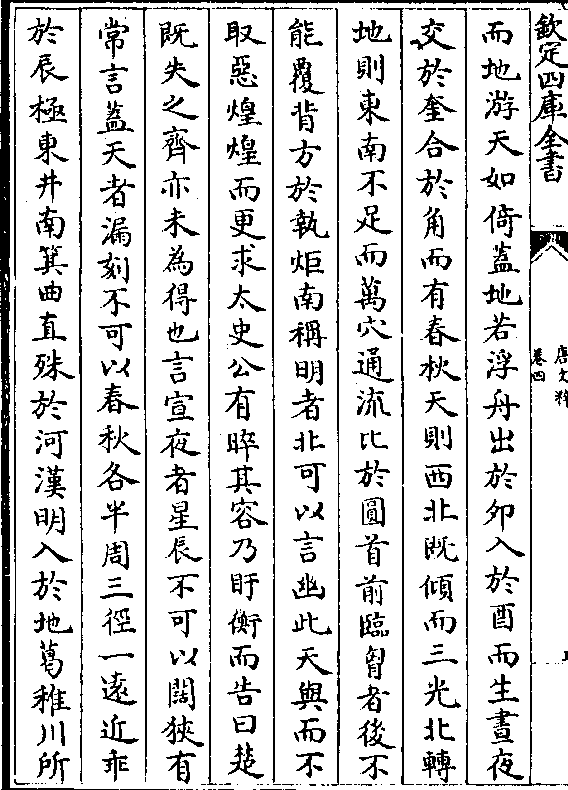 欽定四庫全書
唐文粹
卷四
而地游天如倚蓋地若浮舟出於卯入於酉而生晝夜
交於奎合於角而有春秋天則西北既傾而三光北轉
地則東南不足而萬穴通流比於圓首前臨胷者後不
能覆背方於執炬南稱明者北可以言幽此天與而不
取惡煌煌而更求太史公有睟其容乃盱衡而告曰楚
既失之齊亦未為得也言宣夜者星辰不可以闊狹有
常言蓋天者漏刻不可以春秋各半周三徑一遠近乖
於辰極東井南箕曲直殊於河漢明入於地葛稚川所